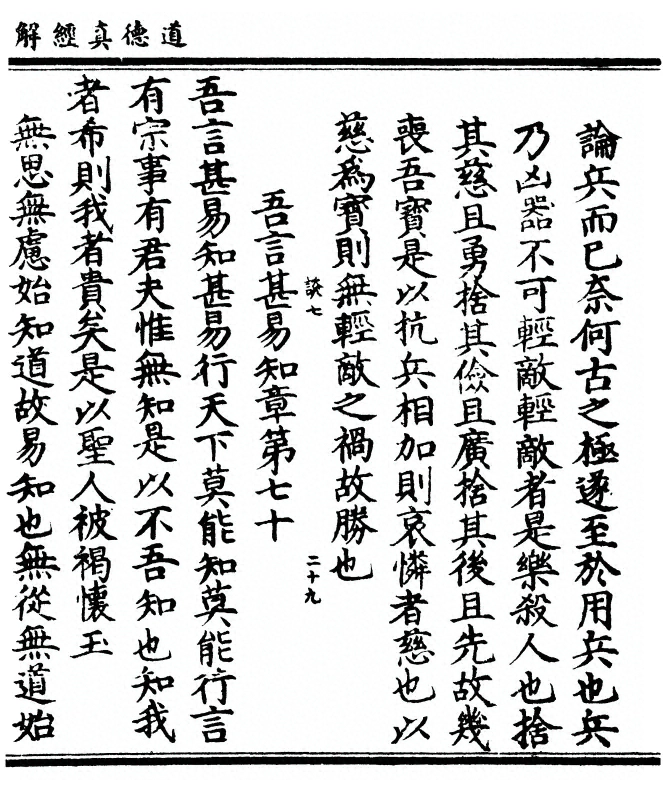 道德真經解
論兵而已奈何古之極遂至於用兵也兵
乃凶器不可輕敵輕敵者是樂殺人也捨
其慈且勇捨其儉且廣捨其後且先故幾
喪吾寶是以抗兵相加則哀憐者慈也以
慈爲寶則無輕敵之禍故勝也
談七
二十九
吾言甚易知章第七十
吾言甚易知甚易行天下莫能知莫能行言
有宗事有君夫惟無知是以不吾知也知我
者希則我者貴矣是以聖人被褐懷玉
無思無慮始知道故易知也無從無道始